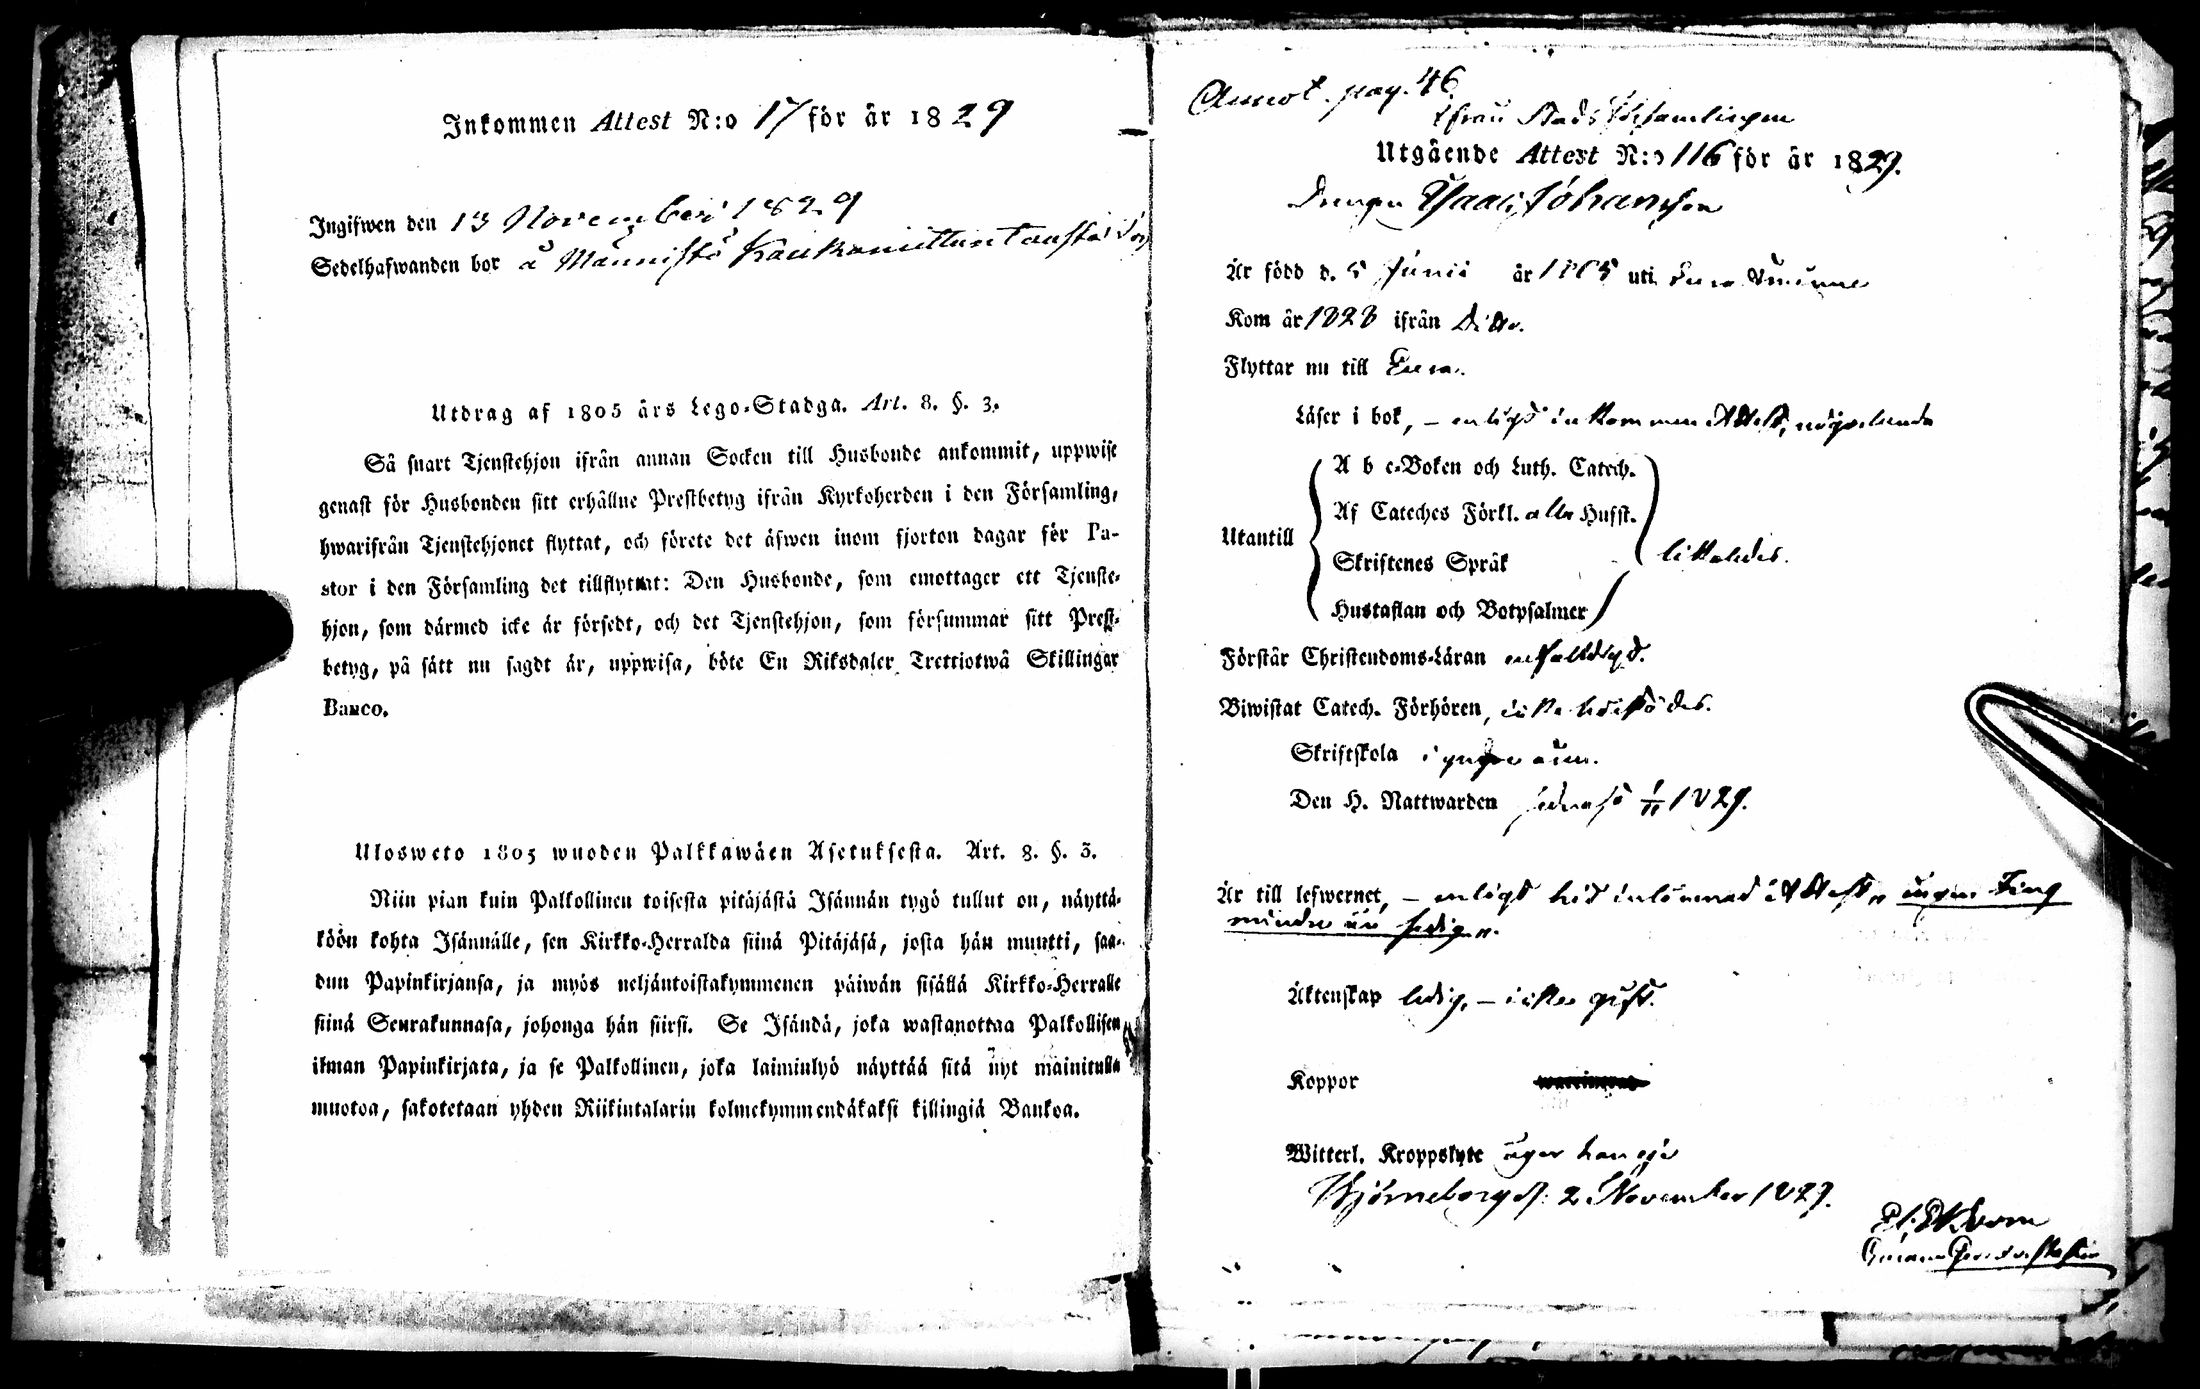 Inkommen Attest N:o 17 för år 1829
Ingifwen den 13 November 1829
Sedelhafwanden bor å Männistö
Utdrag af 1805 års Lego-Stadga. Art. 8. §. 3.
Så snart Tjenstehjon ifrån annan Socken till Husbonde ankommit, uppwise
genast för Husbonden sitt erhållne Prestbetyg ifrån Kyrkoherden i den Församling,
hwarifrån Tjenstehjonet flyttat, och förete det äfwen inom fjorton dagar för Pa-
stor i den Församling det tillflyttat: Den Husbonde, som emottager ett Tjenste-
hjon, som därmed icke är försedt, och det Tjenstehjon, som försummar sitt Prest-
betyg, på sätt nu sagdt är, uppwisa, böte En Riksdaler Trettiotwå Skillingar
Banco.
Ulosweto 1805 wuoden Palkkawäen Asetuksesta. Art. 8. §. 3.
Niin pian kuin Palkollinen toisesta pitäjästä Isännän tygö tullut on, näyttä-
köön kohta Isännälle, sen Kirkko-Herralda siinä Pitäjäsä, josta hän muutti, saa-
dun Papinkirjansa, ja myös neljäntoistakymmenen päiwän sisällä Kirkko-Herralle
siinä Seurakunnasa, johonga hän siirsi. Se Isändä, joka wastanottaa Palkollisen
ilman Papinkirjata, ja se Palkollinen, joka laiminlyö näyttää sitä nyt mainitulla
muotoa, sakotetaan yhden Riikintalarin kolmekymmendäkaksi killingiä Bankoa.
Annot. pag. 46
ifrån Stads församlingen
Utgående Attest N:o 116 för år 1829.
Drengen Isaac Johansson
Är född d. 5 Junii år 1805 uti Eura
Kom år 1828 ifrån Ditto.
Flyttar nu till Eura.
Läser i bok, – enligt inkommen Attest, nöjaktande
Utantill
A b c-Boken och Luth. Catech.
Af Cateches Förkl. alla Hufst.
Skriftenes Språk
Hustaflan och Botpsalmer
likaledes.
Förstår Christendoms-Läran enfaldigt.
Biwistat Catech. Förhören,
Skriftskola i yngre åren.
Den H. Nattwarden sednast 1/11 1829.
Är till lefwernet, – enligt hit inlemnad Attest „ ingen ting
mindre än sedig „.
Äktenskap ledig, – icke gift.
Koppor
Witterl. Kroppslyte äger han ej
Björneborg d. 2 November 1829.